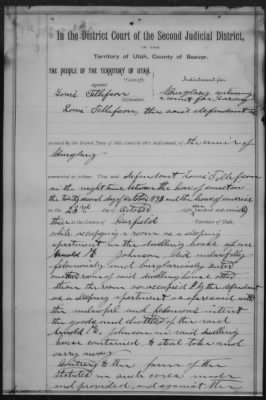 In the District Court of the Second Judicial District,
OF THE
Territory of Utah, County of Beaver.
THE PEOPLE OF THE TERRITORY OF UTAH,
Plaintiff,
against
Indictment for
Louis Tollefson
Defendant.
Louis Tollefson, the said defendant is
accused by the Grand Jury of this Court by this indictment, of the crime of
Burglary
committed as follows: The said defendant Louis Tollefson
in the night time, between the hour of sunset on
the twenty second day of October 1893 and the hour of sunrise
on the 23rd day of October eighteen hundred and ninety
three at the County of Garfield Territory of Utah,
while occupying a room as a sleeping
apartment in the dwelling house of one
Arnold E. Johnson, did unlawfully
feloniously and burglariously enter
another room of said dwelling house other
than the room so occupied by the defendant
as a sleeping apartment as aforesaid with
the unlawful and felonious intent
the goods and chattels of the said
Arnold E. Johnson in said dwelling
house contained, to steal take and
carry away
Contrary to the form of the
statutes in such cases made
and provided, and against the